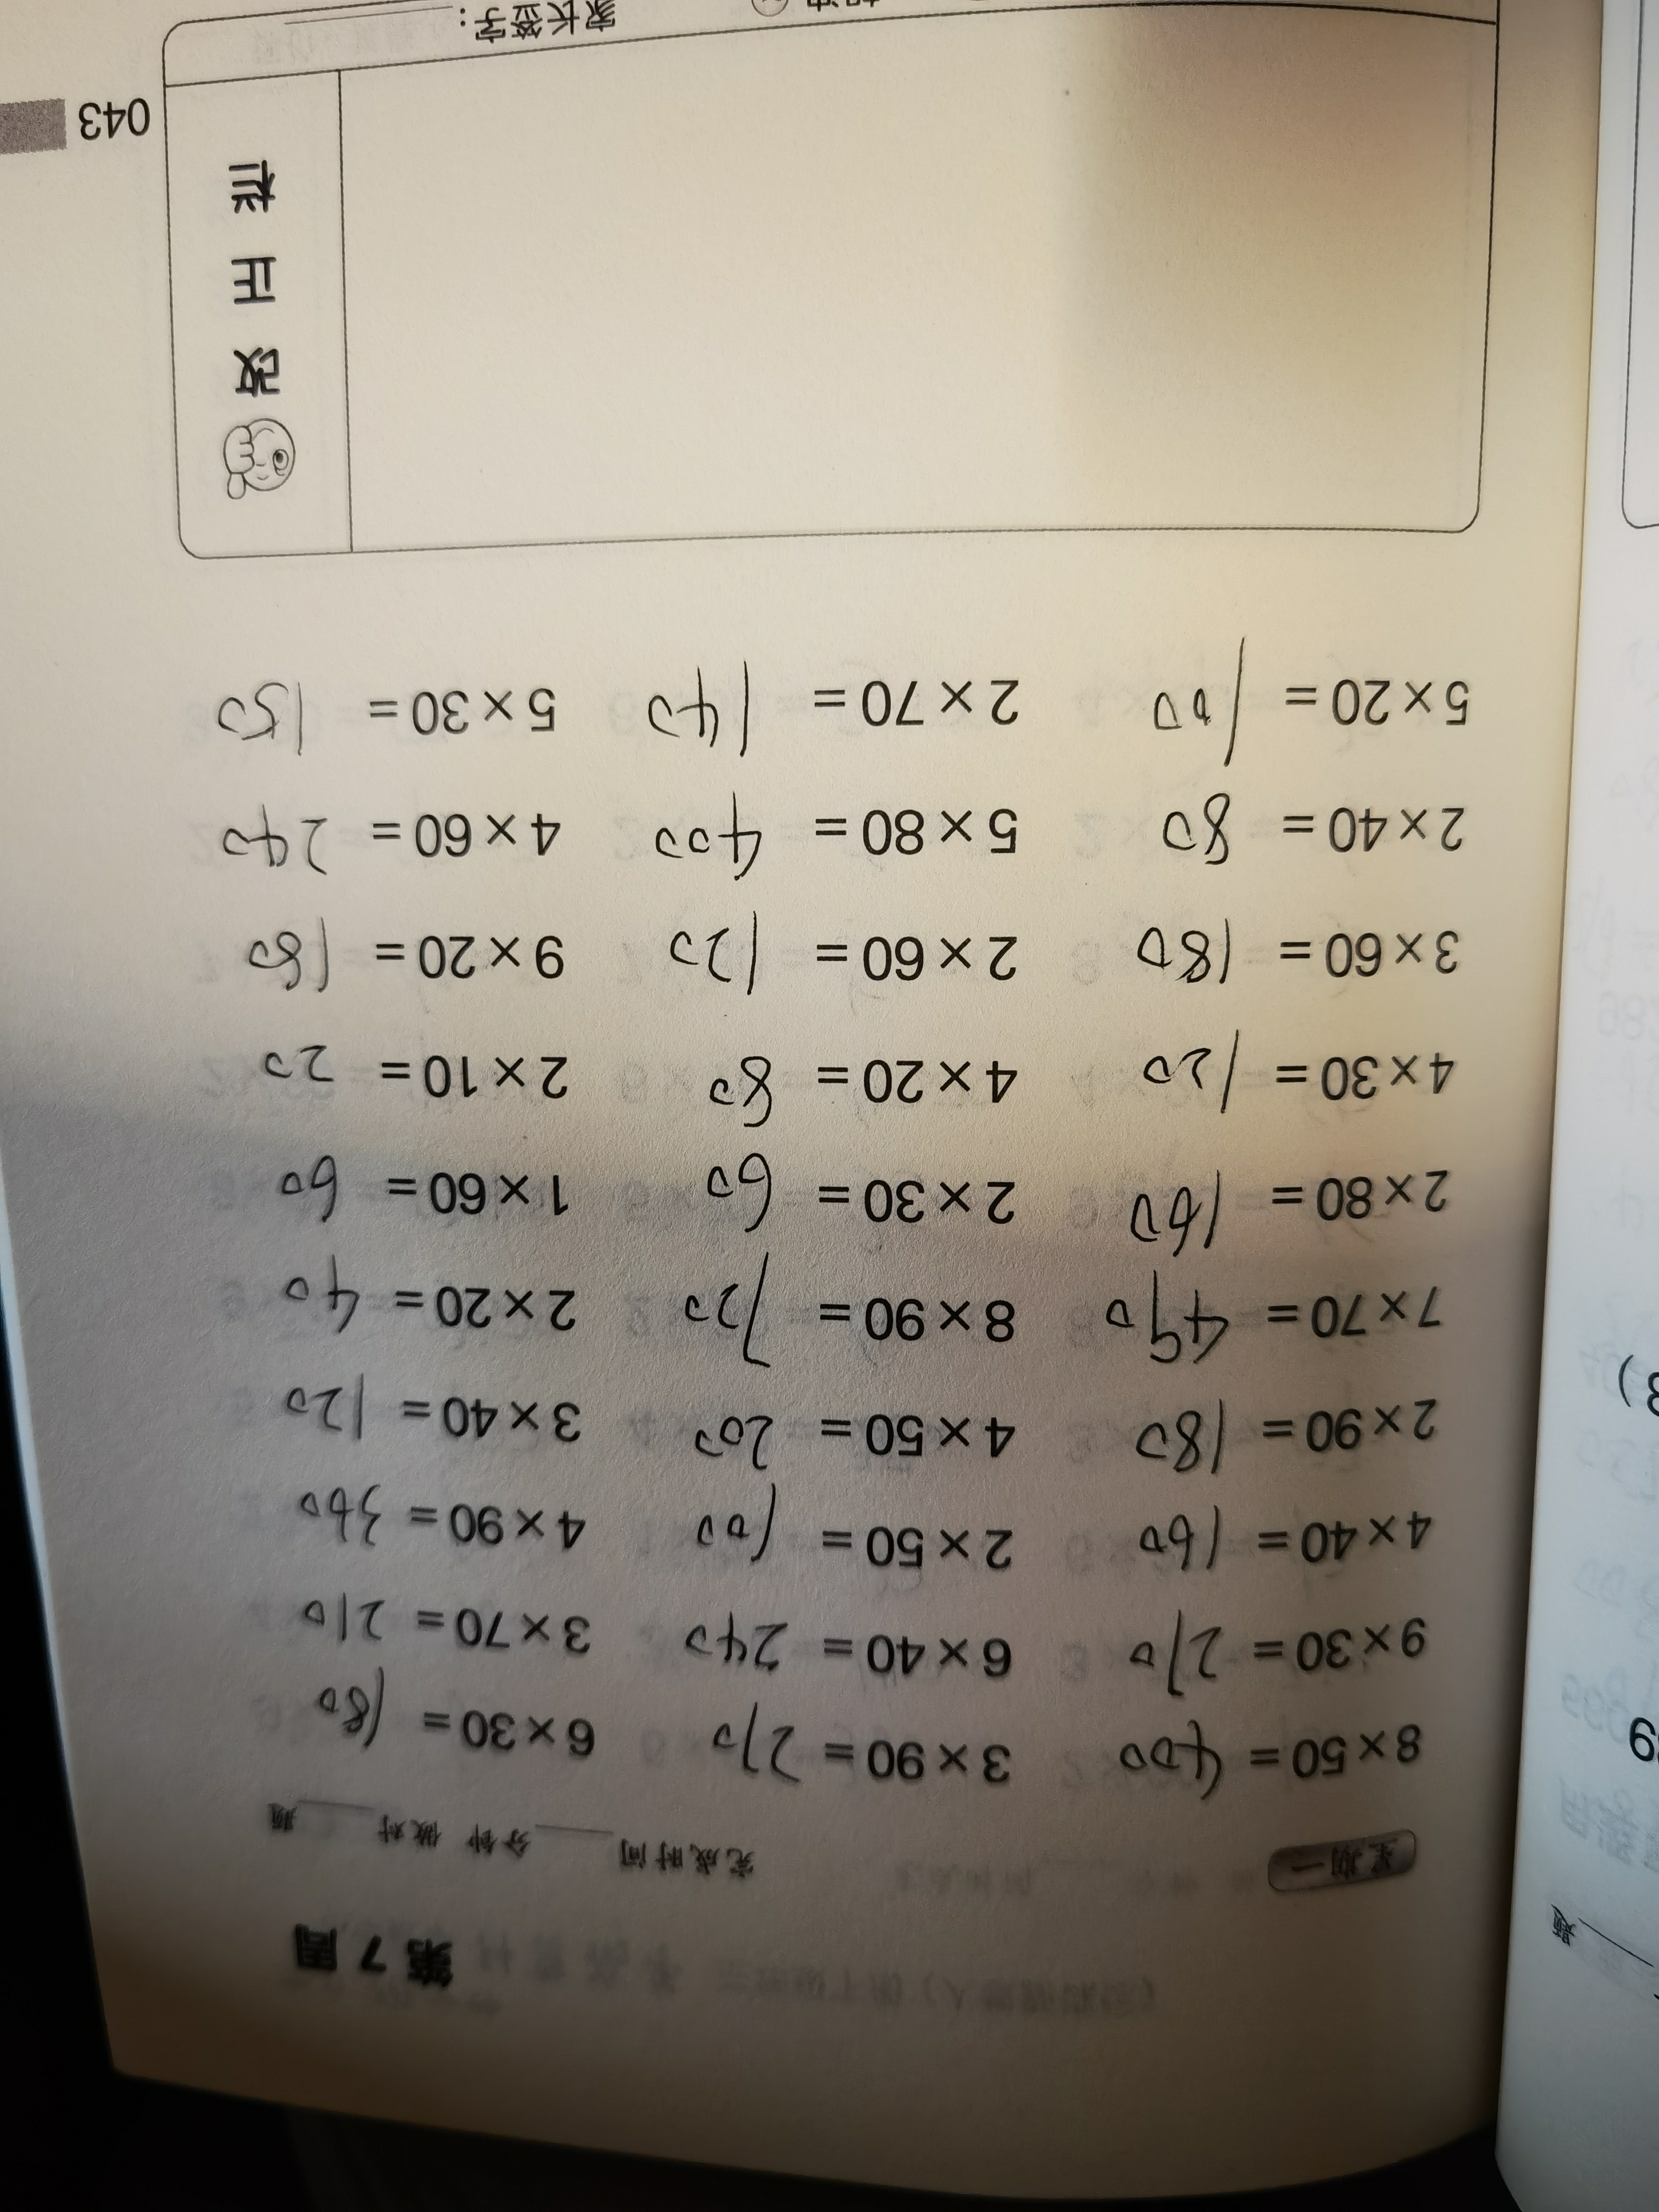 第7周
星期一 完成时间____分钟 做对____题
8×50= 400 3×90= 270 6×30= 180
9×30= 270 6×40= 240 3×70= 210
4×40= 160 2×50= 100 4×90= 360
2×90= 180 4×50= 200 3×40= 120
7×70= 490 8×90= 720 2×20= 40
2×80= 160 2×30= 60 1×60= 60
4×30= 120 4×20= 80 2×10= 20
3×60= 180 2×60= 120 9×20= 180
2×40= 80 5×80= 400 4×60= 240
5×20= 100 2×70= 140 5×30= 150
改正栏
家长签字：
043